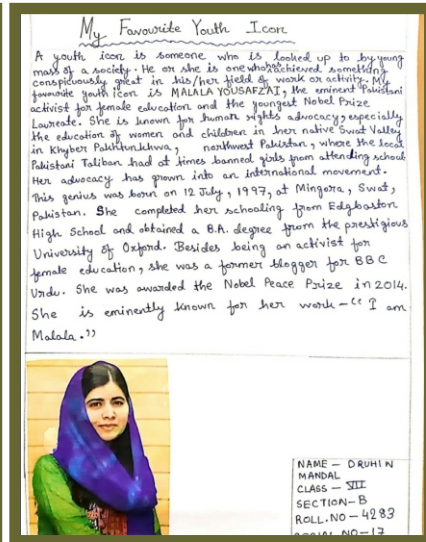 My Favourite Youth Icon
A youth icon is someone who is looked up to by young
mass of a society. He or she is one who has achieved something
conspicuously great in his/her field of work or activity. My
favourite youth icon is MALALA YOUSAFZAI, the eminent Pakistani
activist for female education and the youngest Nobel Prize
Laureate. She is known for human rights advocacy, especially
the education of women and children in her native Swat Valley
in Khyber Pakhtunkhwa, northwest Pakistan, where the local
Pakistani Taliban had at times banned girls from attending school.
Her advocacy has grown into an international movement.
This genius was born on 12 July, 1997, at Mingora, Swat,
Pakistan. She completed her schooling from Edgbaston
High School and obtained a B.A. degree from the prestigious
University of Oxford. Besides being an activist for
female education, she was a former blogger for BBC
Urdu. She was awarded the Nobel Peace Prize in 2014.
She is eminently known for her work - "I am
Malala."
NAME - DRUHIN
MANDAL
CLASS - VII
SECTION - B
ROLL.NO - 4283
NO - 17